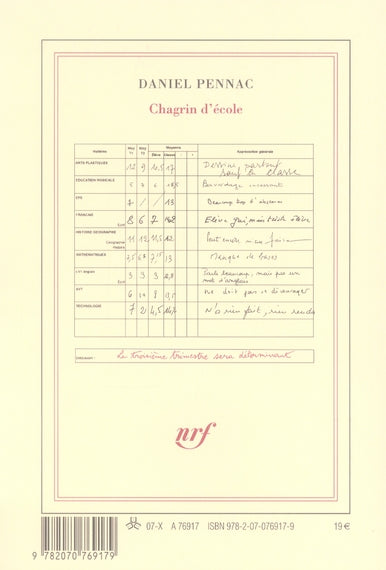 DANIEL PENNAC
Chagrin d'école
Matières
Moy T1
Moy T2
Moyenne
Élève
Classe
Appréciation générale
ARTS PLASTIQUES 12 9 10,5 17 Dessine partout
sauf en classe
EDUCATION MUSICALE 5 7 6 Bavardage incessant
EPS 13 Beaucoup trop d'absences
FRANCAIS Ecrit 8 6 7 Elève gai, mais triste élève
HISTOIRE GEOGRAPHIE 11 12 11,5 12 Peut encore mieux faire
MATHEMATIQUES 13 Manque de bases
LV1 Anglais Ecrit 3 3 3 Parle beaucoup, mais pas un
mot d'anglais
SVT 6 8 Ne doit pas se décourager
TECHNOLOGIE 7 2 4,5 N'a rien fait, rien rendu
Le troisième trimestre sera déterminant
nrf
07-X A 76917 ISBN 978-2-07-076917-9 19 €
9 782070 769179